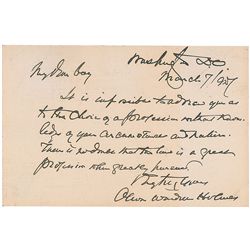 Washington D.C.
March 7/1927
My dear boy
It is impossible to advise you as
to the choice of a profession without know-
ledge of your circumstances and nature.
There is no doubt that the law is a great
profession when greatly pursued
Very truly yours
Oliver Wendell Holmes